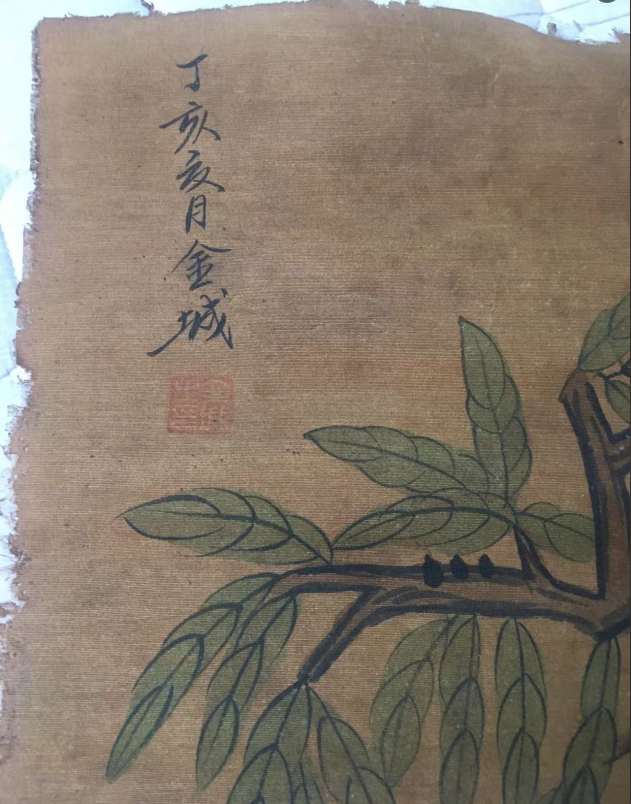 丁亥夏月金城